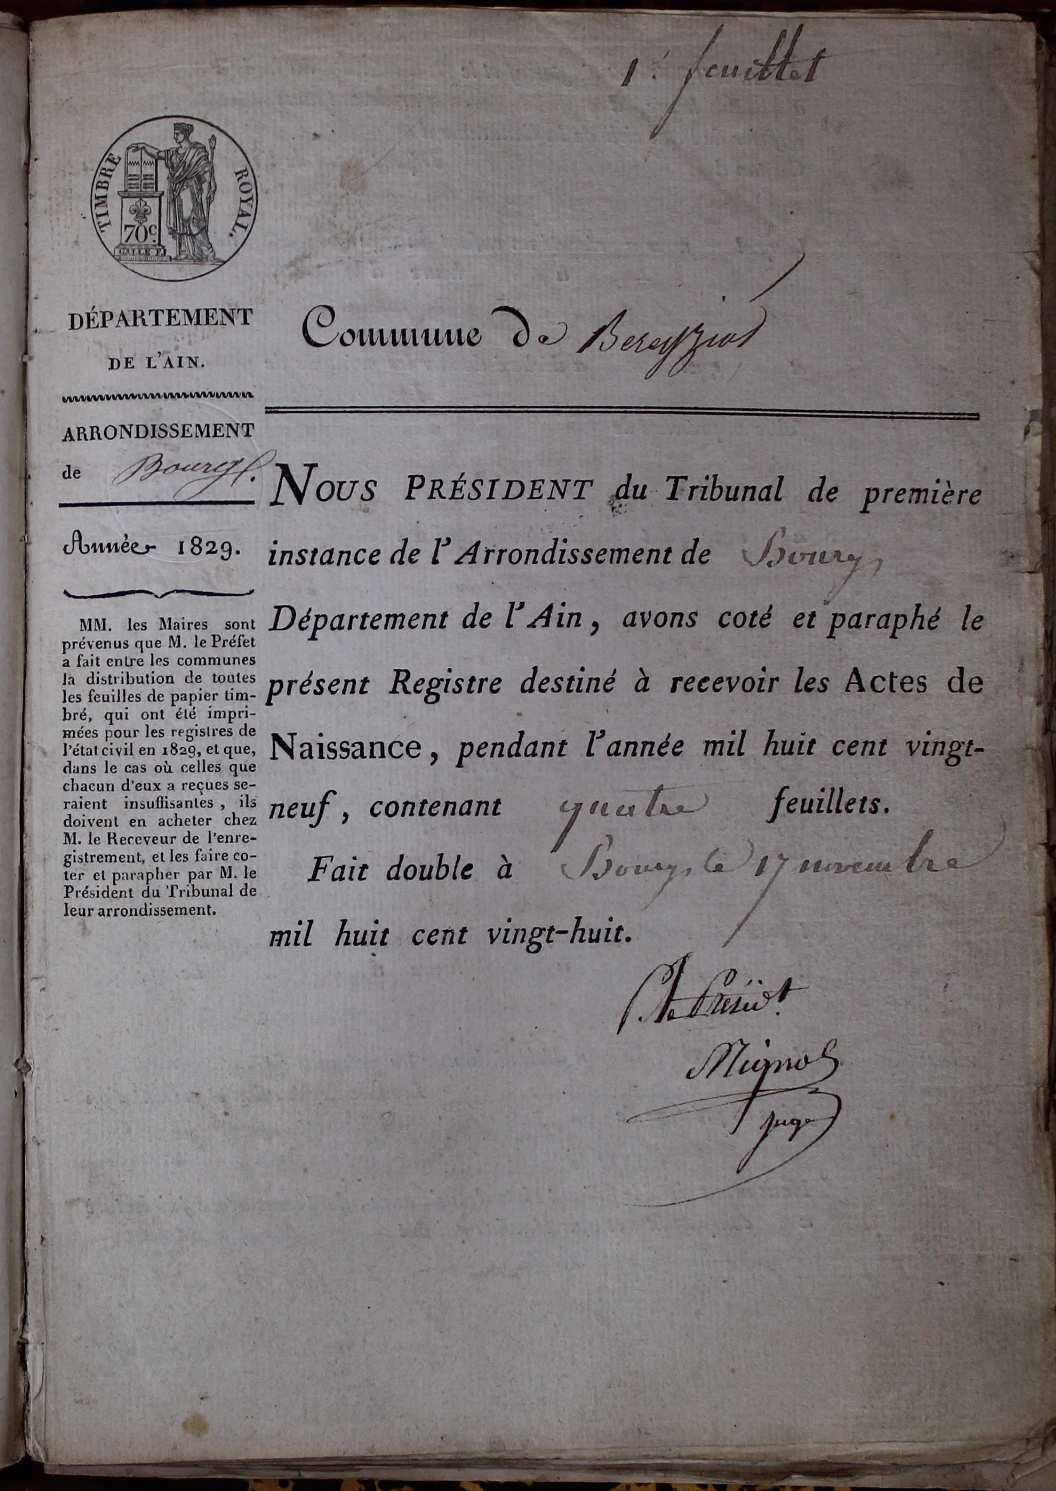 1.r feuillet
TIMBRE ROYAL.
70c.
DÉPARTEMENT
DE L'AIN.
Commune de Béreyziat
ARRONDISSEMENT
de Bourg.
Année 1829.
MM. les Maires sont
prévenus que M. le Préfet
a fait entre les communes
la distribution de toutes
les feuilles de papier tim-
bré, qui ont été impri-
mées pour les registres de
l'état civil en 1829, et que,
dans le cas où celles que
chacun d'eux a reçues se-
raient insuffisantes, ils
doivent en acheter chez
M. le Receveur de l'enre-
gistrement, et les faire co-
ter et parapher par M. le
Président du Tribunal de
leur arrondissement.
NOUS PRÉSIDENT du Tribunal de première
instance de l'Arrondissement de Bourg,
Département de l'Ain, avons coté et paraphé le
présent Registre destiné à recevoir les Actes de
Naissance, pendant l'année mil huit cent vingt-
neuf, contenant quatre feuillets.
Fait double à Bourg, le 17 novembre
mil huit cent vingt-huit.
P. le Présidt.
Mignot
juge